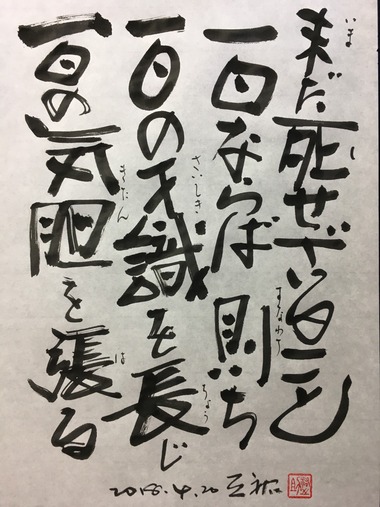 いま
未だ死せざること
し
一日ならば則ち
すなわち
一日の才識を長じ
さいしき
ちょう
一日の気胆を張る
きたん
は
2018.4.20